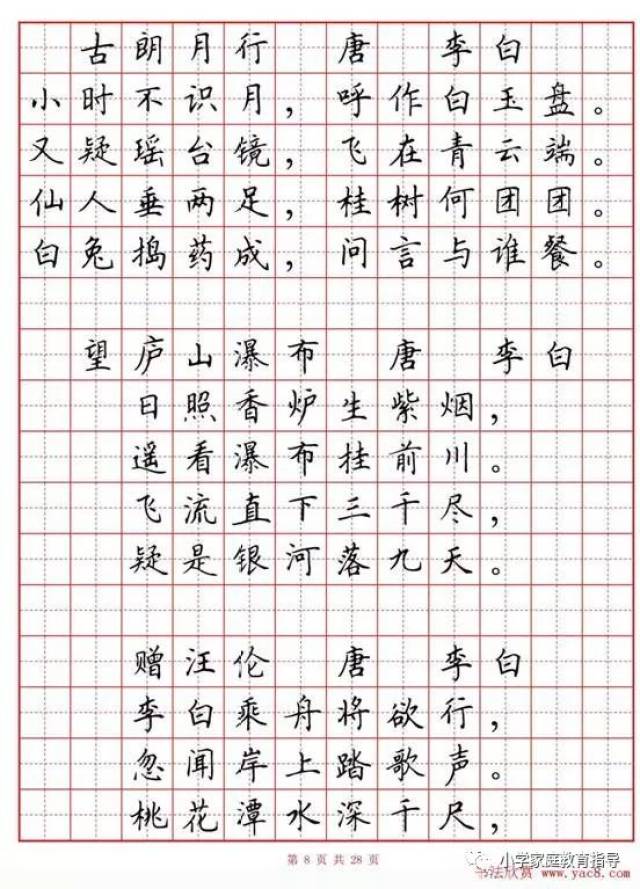 古朗月行 唐 李白
小时不识月，呼作白玉盘。
又疑瑶台镜，飞在青云端。
仙人垂两足，桂树何团团。
白兔捣药成，问言与谁餐。
望庐山瀑布 唐 李白
日照香炉生紫烟，
遥看瀑布挂前川。
飞流直下三千尽，
疑是银河落九天。
赠汪伦 唐 李白
李白乘舟将欲行，
忽闻岸上踏歌声。
桃花潭水深千尺，
第 8 页 共 28 页
小学家庭教育指导
书法欣赏 www.yac8.com